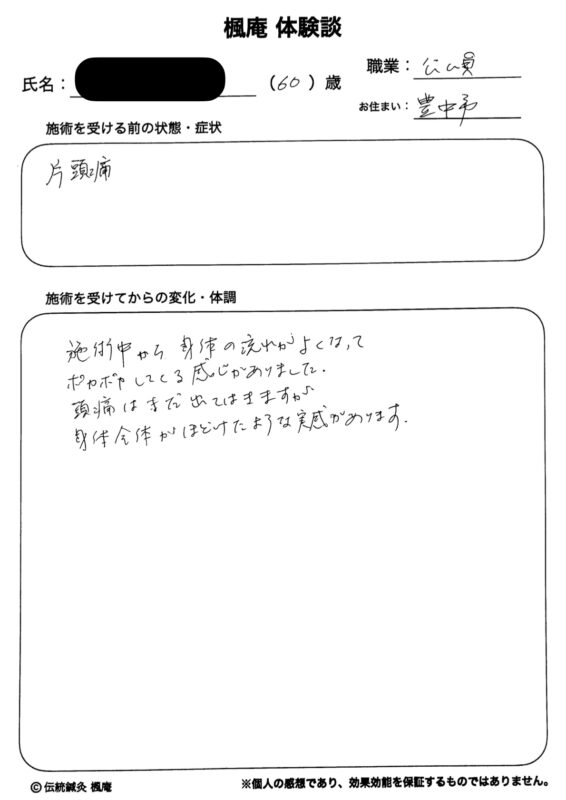 楓庵 体験談
氏名：（60）歳
職業：公ム員
お住まい：豊中市
施術を受ける前の状態・症状
片頭痛
施術を受けてからの変化・体調
施術中から 身体の流れがよくなって
ポカポカしてくる感じがありました.
頭痛はまだ出てはきますが
身体全体がほどけたような実感があります.
©伝統鍼灸 楓庵
※個人の感想であり、効果効能を保証するものではありません。